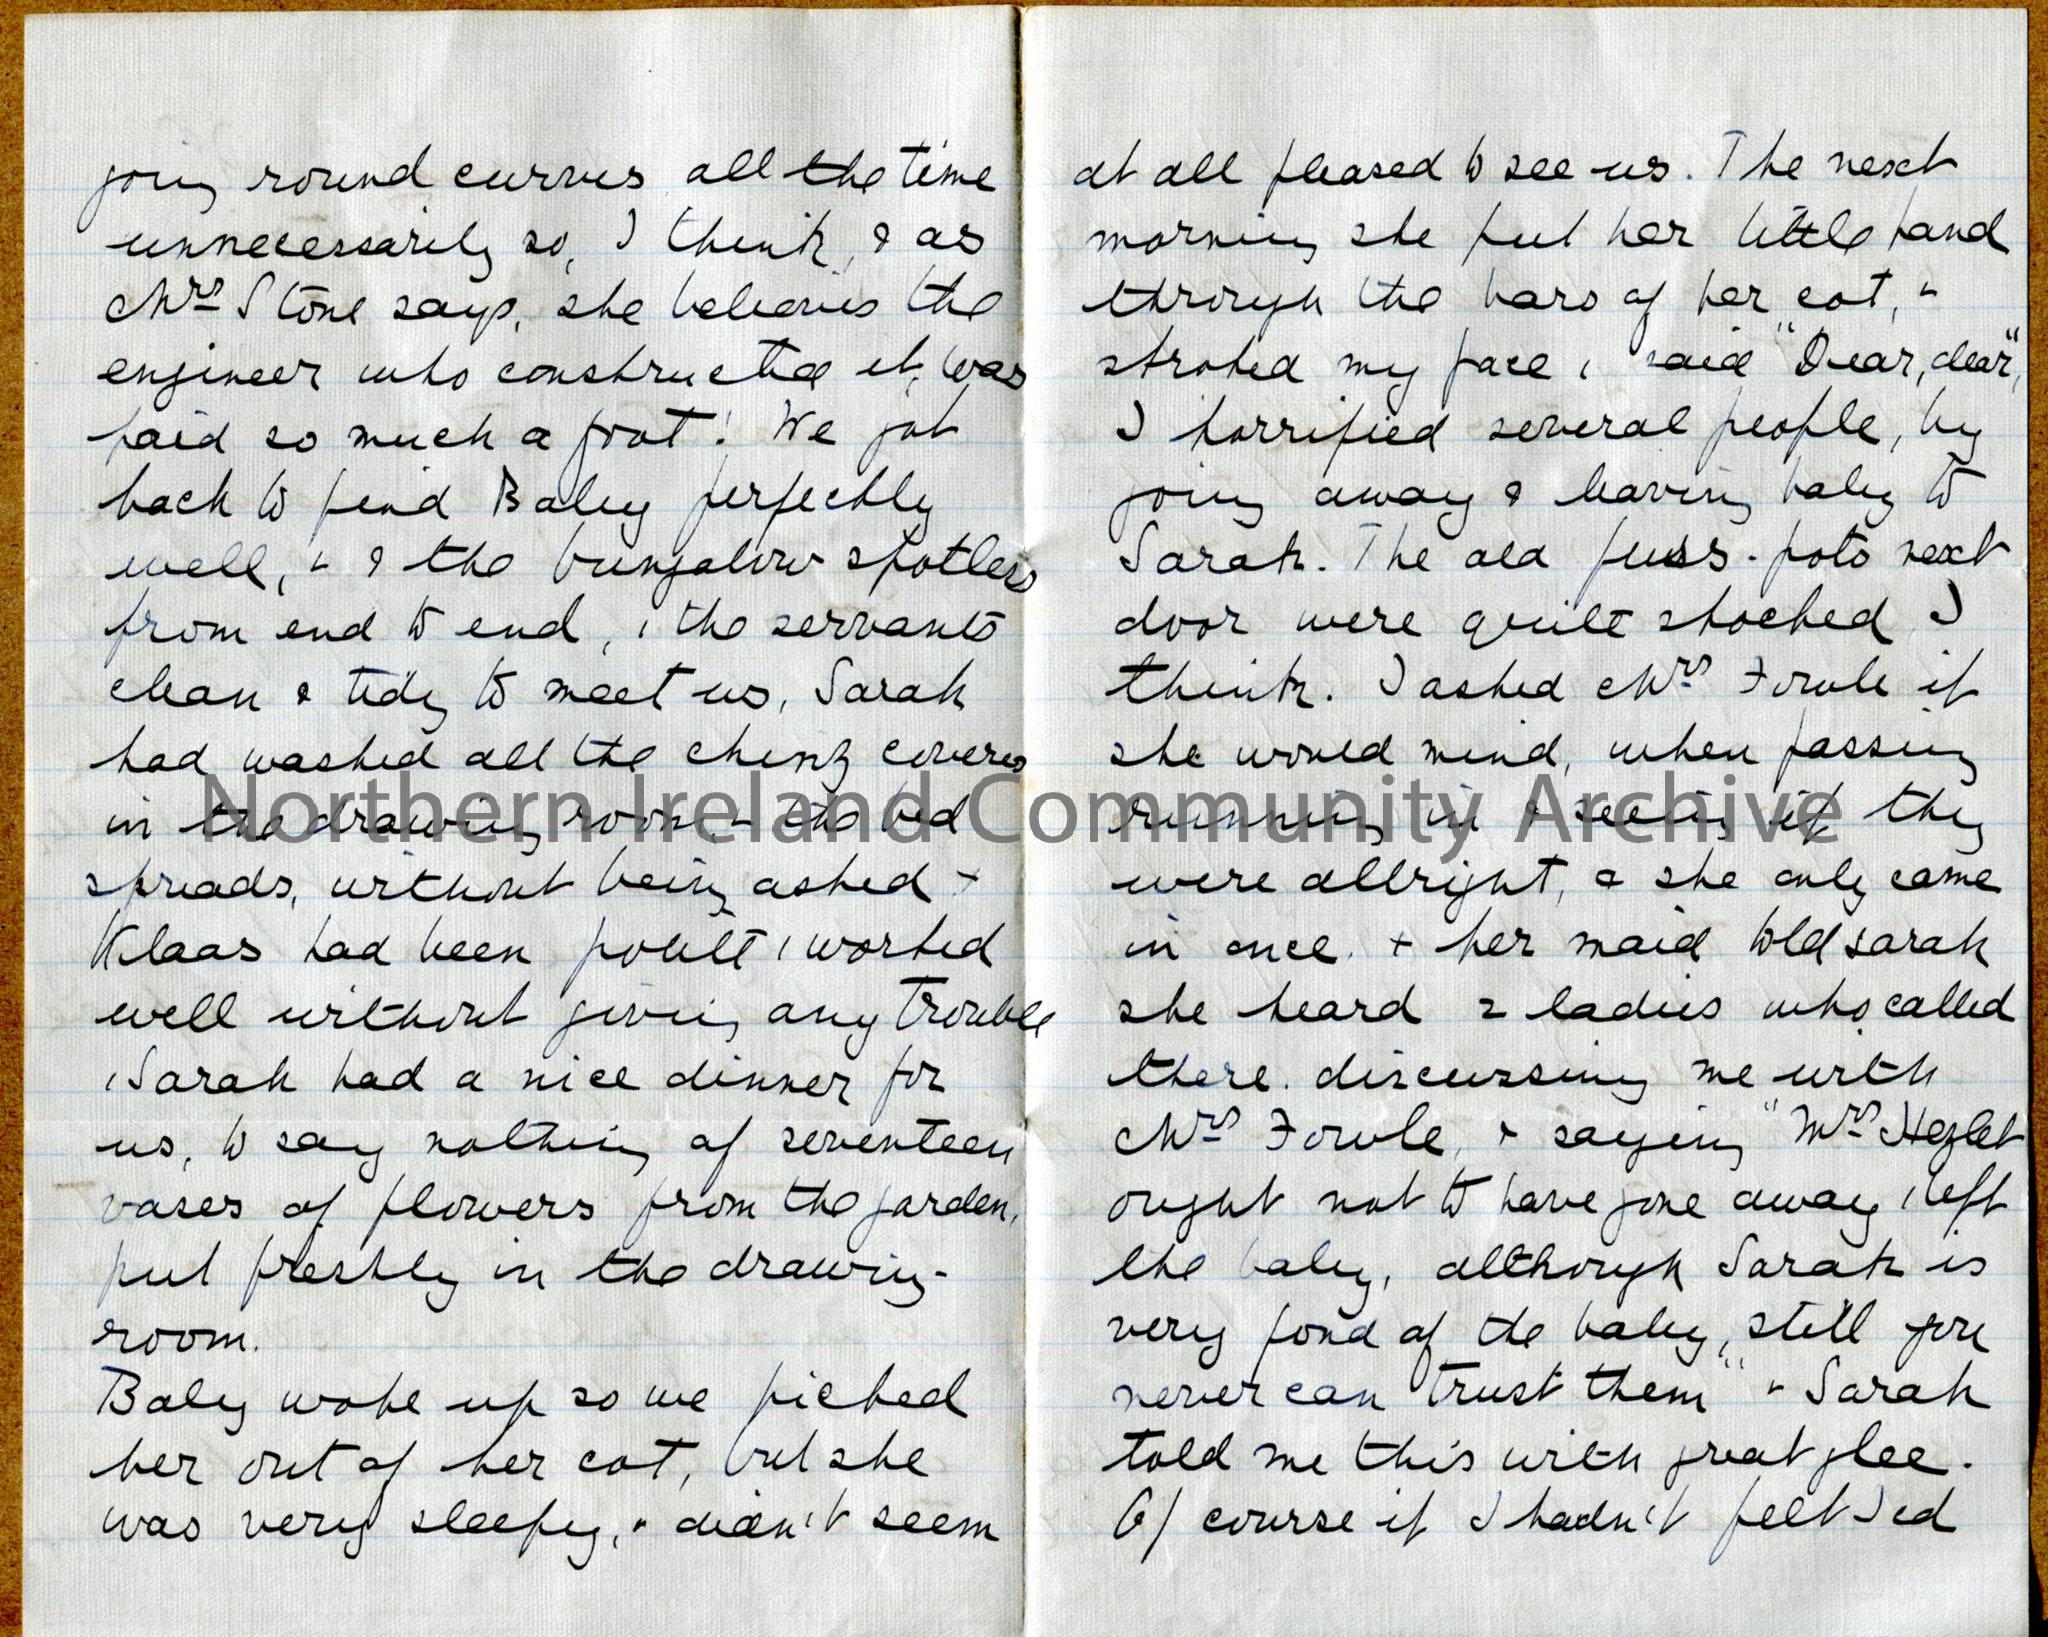 going round curves all the time
unnecessarily so, I think, & as
Mrs Stone says, she believes the
engineer who constructed it, was
paid so much a foot! We got
back to find Baby perfectly
well, & & the bungalow spotless
from end to end, & the servants
clean & tidy to meet us, Sarah
had washed all the chintz covers
in the drawing room, & the bed
spreads, without being asked &
Klaas had been polite & worked
well without giving any trouble
& Sarah had a nice dinner for
us, to say nothing of seventeen
vases of flowers from the garden,
put freshly in the drawing-
room.
Baby woke up so we picked
her out of her cot, but she
was very sleepy, & didn't seem
at all pleased to see us. The next
morning she put her little hand
through the bars of her cot, &
stroked my face & said "Dear, dear",
I horrified several people, by
going away & leaving baby to
Sarah. The old fuss-pots next
door were quite shocked I
think. I asked Mrs Fowle if
she would mind, when passing
running in & seeing if they
were allright, & she only came
in once. & her maid told Sarah
she heard 2 ladies who called
there. discussing me with
Mrs Fowle, & saying "Mrs Hezlet
ought not to have gone away & left
the baby, although Sarah is
very fond of the baby, still you
never can trust them" & Sarah
told me this with great glee.
Of course if I hadn't felt I'd
Northern Ireland Community Archive